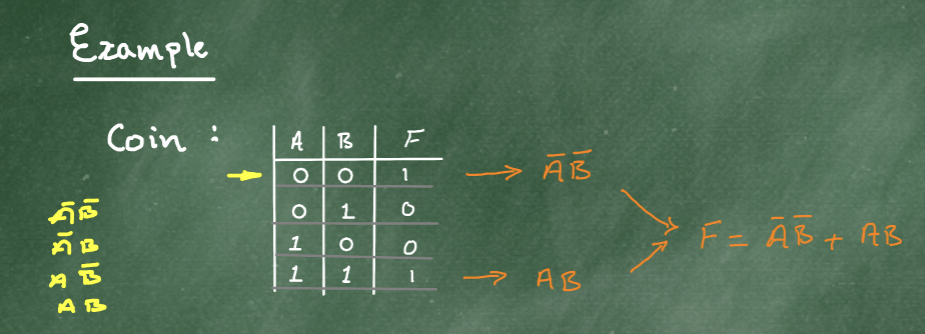 Example
Coin :
A B F
0 0 1 → A̅ B̅
0 1 0
1 0 0
1 1 1 → A B
F̅ = A̅ B̅ + A B
A̅ B̅
A̅ B
A B̅
A B